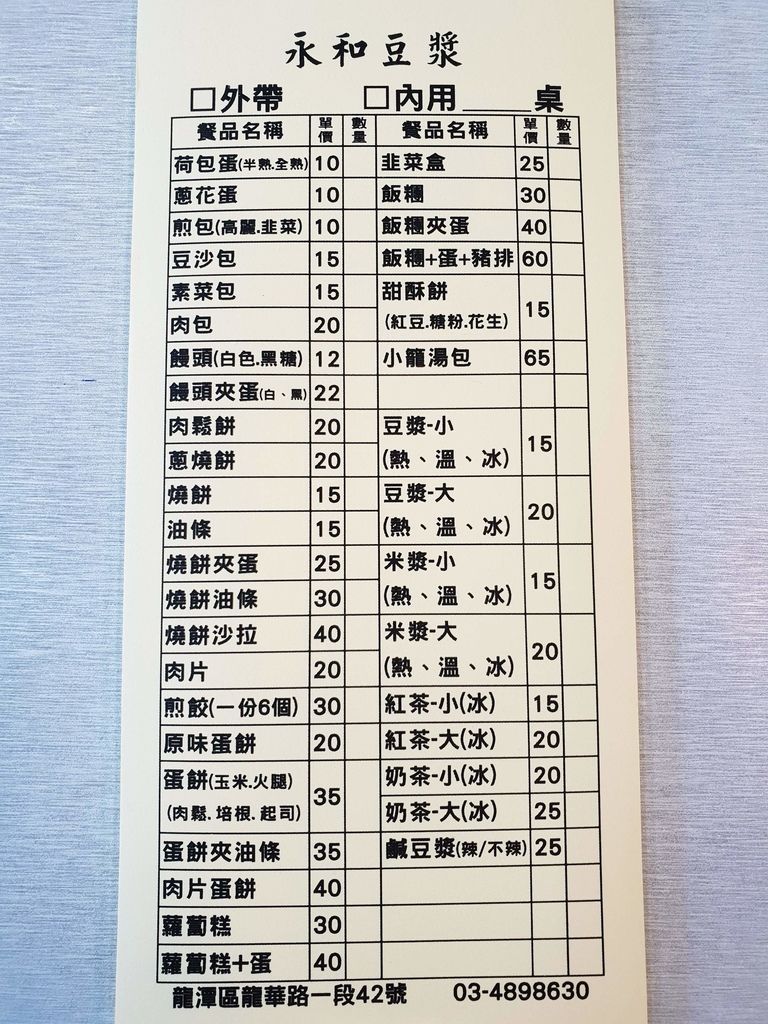 永和豆漿
□外帶 □內用____桌
餐品名稱 單價 數量 餐品名稱 單價 數量
荷包蛋(半熟.全熟) 10 韭菜盒 25
蔥花蛋 10 飯糰 30
煎包(高麗.韭菜) 10 飯糰夾蛋 40
豆沙包 15 飯糰+蛋+豬排 60
素菜包 15 甜酥餅 15
肉包 20 (紅豆.糖粉.花生)
饅頭(白色.黑糖) 12 小籠湯包 65
饅頭夾蛋(白、黑) 22
肉鬆餅 20 豆漿-小 15
蔥燒餅 20 (熱、溫、冰)
燒餅 15 豆漿-大 20
油條 15 (熱、溫、冰)
燒餅夾蛋 25 米漿-小 15
燒餅油條 30 (熱、溫、冰)
燒餅沙拉 40 米漿-大 20
肉片 20 (熱、溫、冰)
煎餃(一份6個) 30 紅茶-小(冰) 15
原味蛋餅 20 紅茶-大(冰) 20
蛋餅(玉米.火腿) 35 奶茶-小(冰) 20
(肉鬆.培根.起司) 奶茶-大(冰) 25
蛋餅夾油條 35 鹹豆漿(辣/不辣) 25
肉片蛋餅 40
蘿蔔糕 30
蘿蔔糕+蛋 40
龍潭區龍華路一段42號 03-4898630